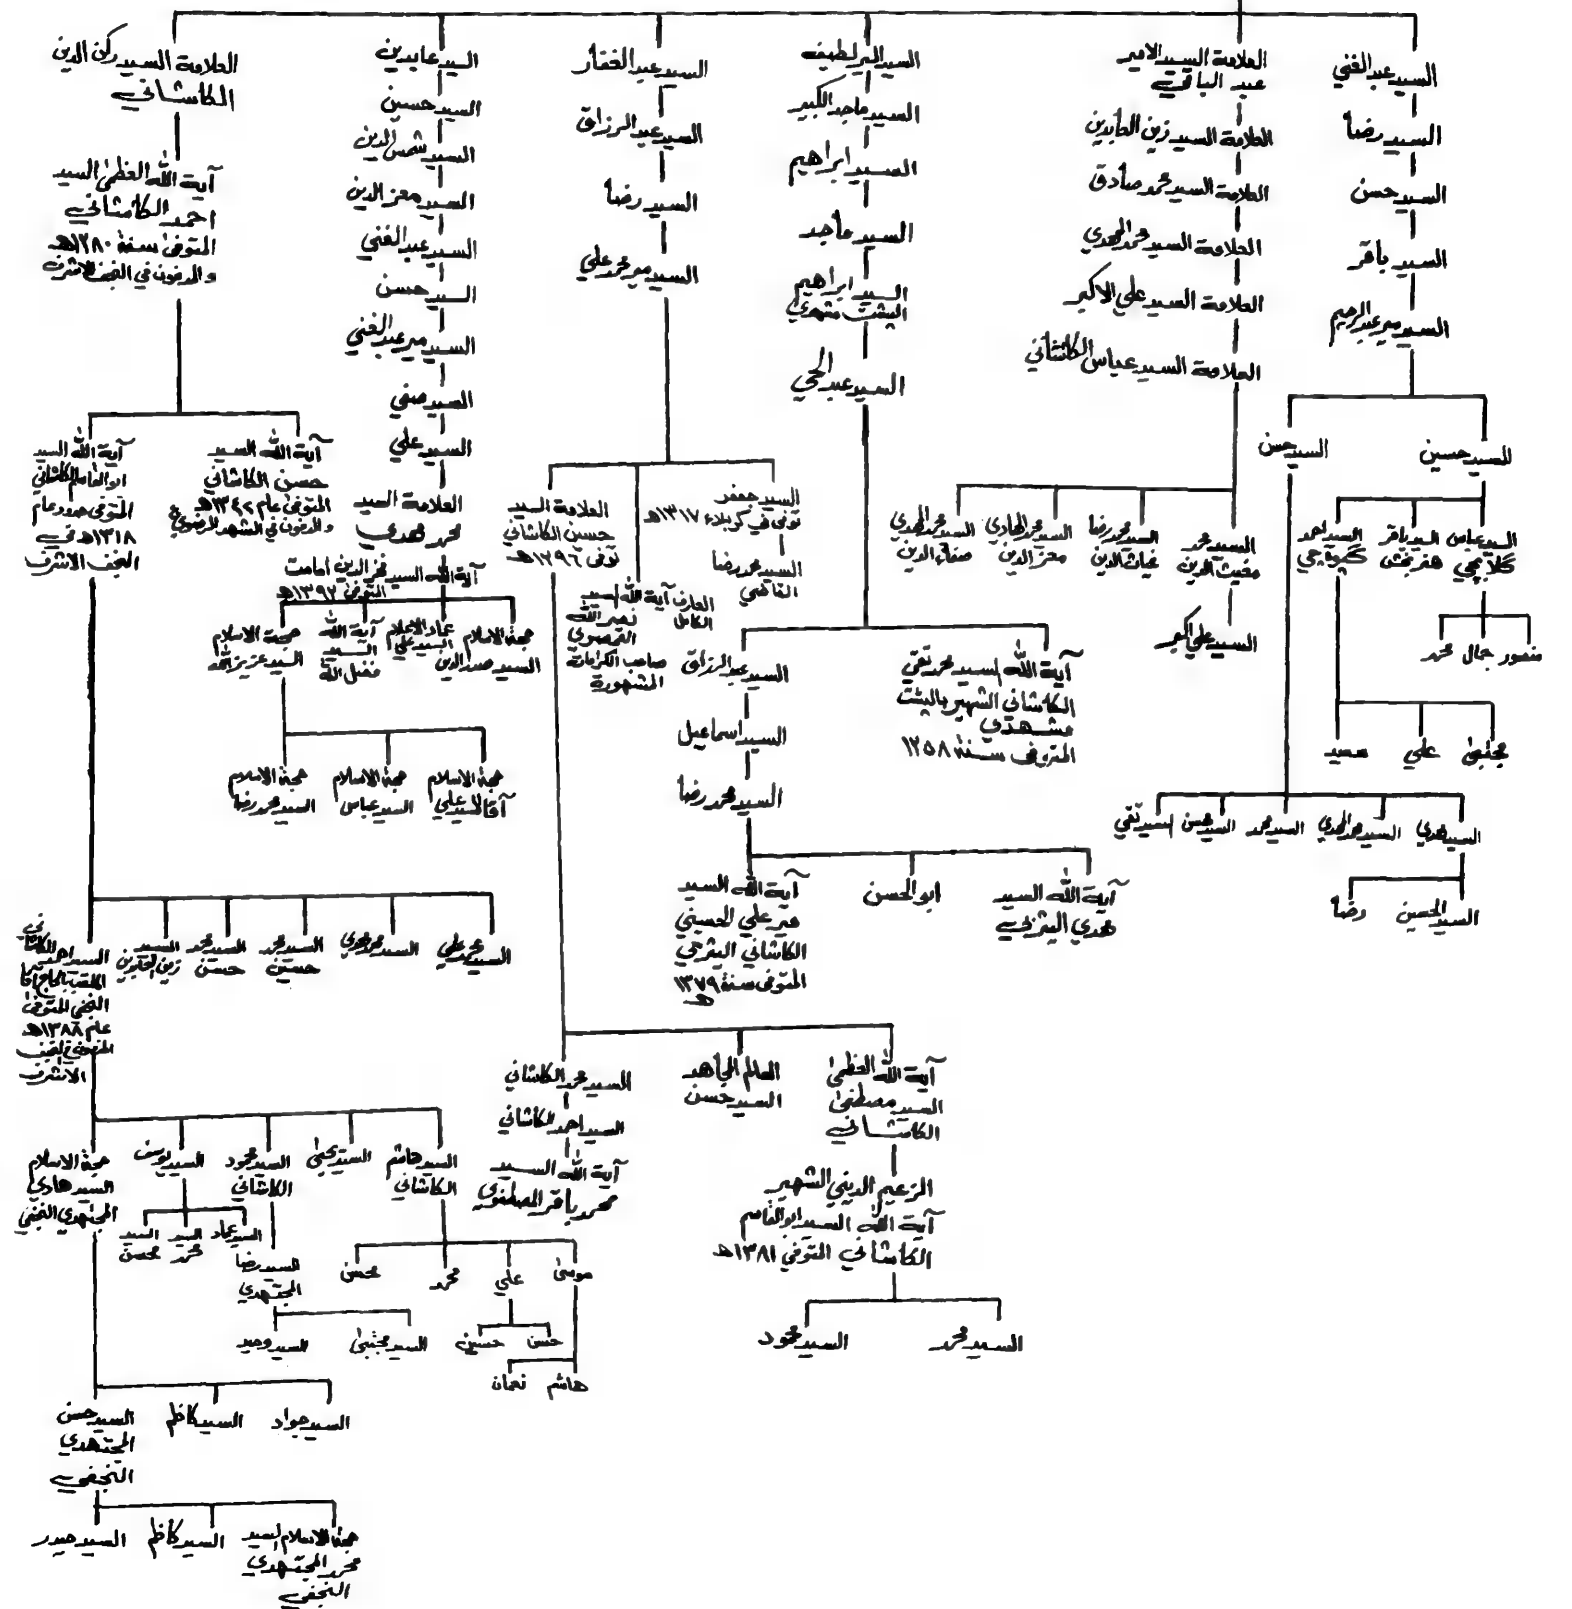 السيد عبد الغني
السيد رضا
السيد حسن
السيد باقر
السيد مير عبد الرحيم
السيد حسين
السيد حسن
السيد عباس
كلابچي
السيد باقر
هنربخش
السيد احمد
منصور
جمال
محمد
مجتبى
علي
سعيد
السيد مهدي
السيد محمد المهدي
السيد محمد
السيد حسن
السيد تقي
السيد الحسين
رضا
العلامة السيد الامير
عبد الباقي
العلامة السيد زين العابدين
العلامة السيد محمد صادق
العلامة السيد محمد المهدي
العلامة السيد علي الاكبر
العلامة السيد عباس الكاشاني
السيد محمد
مغيث الدين
السيد محمد رضا
غياث الدين
السيد محمد الهادي
معز الدين
السيد محمد المهدي
صفاء الدين
السيد علي اكبر
السيد مير لطيف
السيد ماجد الكبير
السيد ابراهيم
السيد ماجد
السيد ابراهيم
البشت مشهدي
السيد عبد الحي
آية الله السيد محمد تقي
الكاشاني الشهير بالبشت
مشهدي
المتوفى سنة ١٢٥٨
السيد عبد الرزاق
السيد اسماعيل
السيد محمد رضا
آية الله السيد
مهدي اليثربي
ابو الحسن
آية الله السيد
مير علي الحسيني
الكاشاني اليثربي
المتوفى سنة ١٣٧٩
هـ
السيد عبد الغفار
السيد عبد الرزاق
السيد رضا
السيد مير محمد علي
السيد جعفر
توفى في كربلاء ١٣١٧هـ
السيد محمد رضا
القاضي
العارف آية الله السيد
الكامل
نصر الله
صاحب الكرامات
المشهورة
العلامة السيد
حسين الكاشاني
توفى ١٢٩٦هـ
آية الله العظمى
السيد مصطفى
الكاشاني
العالم المجاهد
السيد حسن
السيد محمد الكاشاني
السيد احمد الكاشاني
آية الله السيد
محمد باقر المصطفوي
الزعيم الديني الشهير
آية الله السيد ابو القاسم
الكاشاني المتوفى ١٣٨١هـ
السيد محمد
السيد محمود
السيد عابدين
السيد حسين
السيد شمس الدين
السيد معز الدين
السيد عبد الغني
السيد حسن
السيد مير عبد الغني
السيد صفي
السيد علي
العلامة السيد
محمد مهدي
آية الله السيد فخر الدين امامت
المتوفى ١٣٩٢هـ
حجة الاسلام
السيد صدر الدين
عماد الاعلام
السيد علي
آية الله
السيد
فضل الله
حجة الاسلام
السيد عزيز الله
حجة الاسلام
آقا السيد علي
حجة الاسلام
السيد عباس
حجة الاسلام
السيد محمد رضا
العلامة السيد ركن الدين
الكاشاني
آية الله العظمى السيد
احمد الكاشاني
المتوفى سنة ١٢٨٠هـ
والمدفون في النجف الاشرف
آية الله السيد
حسن الكاشاني
المتوفى عام ١٣٤٢هـ
والمدفون في المشهد الرضوي
آية الله السيد
ابو القاسم الكاشاني
المتوفى حدود عام
١٣١٨هـ في
النجف الاشرف
السيد محمد علي
السيد محمد مهدي
السيد محمد
حسين
السيد محمد
حسن
السيد
زين العابدين
السيد احمد الكاشاني
الملقب بالحاج آقا
النجفي المتوفى
عام ١٣٨٨هـ
الاشرف
السيد هاشم
الكاشاني
السيد يحيى
السيد محمود
الكاشاني
السيد يوسف
حجة الاسلام
السيد هادي
المجتهدي النجفي
السيد عماد
السيد
محمد
السيد
محسن
السيد رضا
المجتهدي
موسى
علي
محمد
محسن
السيد مجتبى
السيد وحيد
حسن
حسين
هاشم
نعمان
السيد جواد
السيد كاظم
السيد حسن
المجتهدي
النجفي
حجة الاسلام السيد
محمد المجتهدي
النجفي
السيد كاظم
السيد حيدر